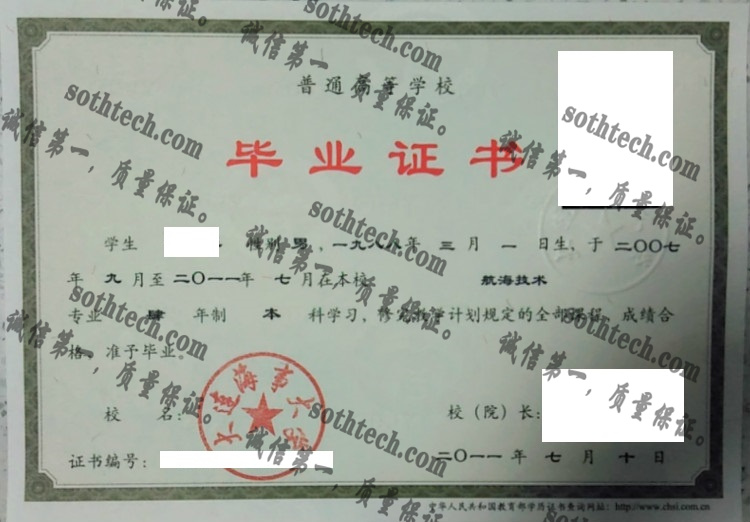 普通高等学校
毕业证书
学生 性别 男，一九八八年 三 月 一 日生，于 二〇〇七
年 九 月至 二〇一一年 七 月在本校 航海技术
专业 肆 年制 本 科学习，修完教学计划规定的全部课程，成绩合
格，准予毕业。
大连海事大学
校 名： 校（院）长：
证书编号： 二〇一一 年 七 月 十 日
中华人民共和国教育部学历证书查询网址：http://www.chsi.com.cn
sothtech.com
诚信第一，质量保证。
sothtech.com
诚信第一，质量保证。
sothtech.com
诚信第一，质量保证。
sothtech.com
诚信第一，质量保证。
sothtech.com
诚信第一，质量保证。
sothtech.com
诚信第一，质量保证。
sothtech.com
诚信第一，质量保证。
sothtech.com
诚信第一，质量保证。